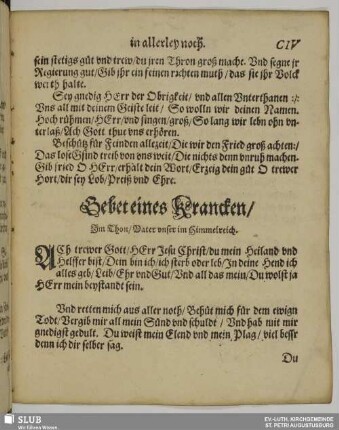 in allerley noth. CIV
sein stetigs güt vnd trew/du jren Thron groß mache. Vnd segne jr
Regierung gut/Gib jhr ein feinen rechten muth/das sie jhr Volck
werth halte.
Sey gnedig HErr der Obrigkeit/ vnd allen Vnterthanen :/:
Vns all mit deinem Geiste leit/ So wolln wir deinen Namen.
Hoch rühmen/HErr/vnd singen/groß/So lang wir lebn ohn vn-
terlaß/Ach Gott thue vns erhören.
Beschütz für Feinden allezeit/Die wir den Fried groß achten:/
Das lose Gsind treib von vns weit/Die nichts denn vnruh machen.
Gib fried O HErr/erhalt dein Wort/Erzeig dein güt O trewer
Hort/dir sey Lob/Preiß vnd Ehre.
Gebet eines Krancken/
Im Thon/Vater vnser im Himmelreich.
ACh trewer Gott/HErr Jesu Christ/du mein Heiland vnd
Helffer bist/Dein bin ich/ich sterb oder leb/In deine Hend ich
alles geb/Leib/Ehr vnd Gut/Vnd all das mein/Du wolst ja
HErr mein beystandt sein.
Vnd retten mich aus aller noth/ Behüt mich für dem ewign
Todt/Vergib mir all mein Sünd vnd schuldt / Vnd hab mit mir
gnedigst gedult. Du weist mein Elend vnd mein Plag/ viel bessr
denn ich dir selber sag.
Du
SLUB
Wir führen Wissen.
EV.-LUTH. KIRCHGEMEINDE
ST. PETRI AUGUSTUSBURG